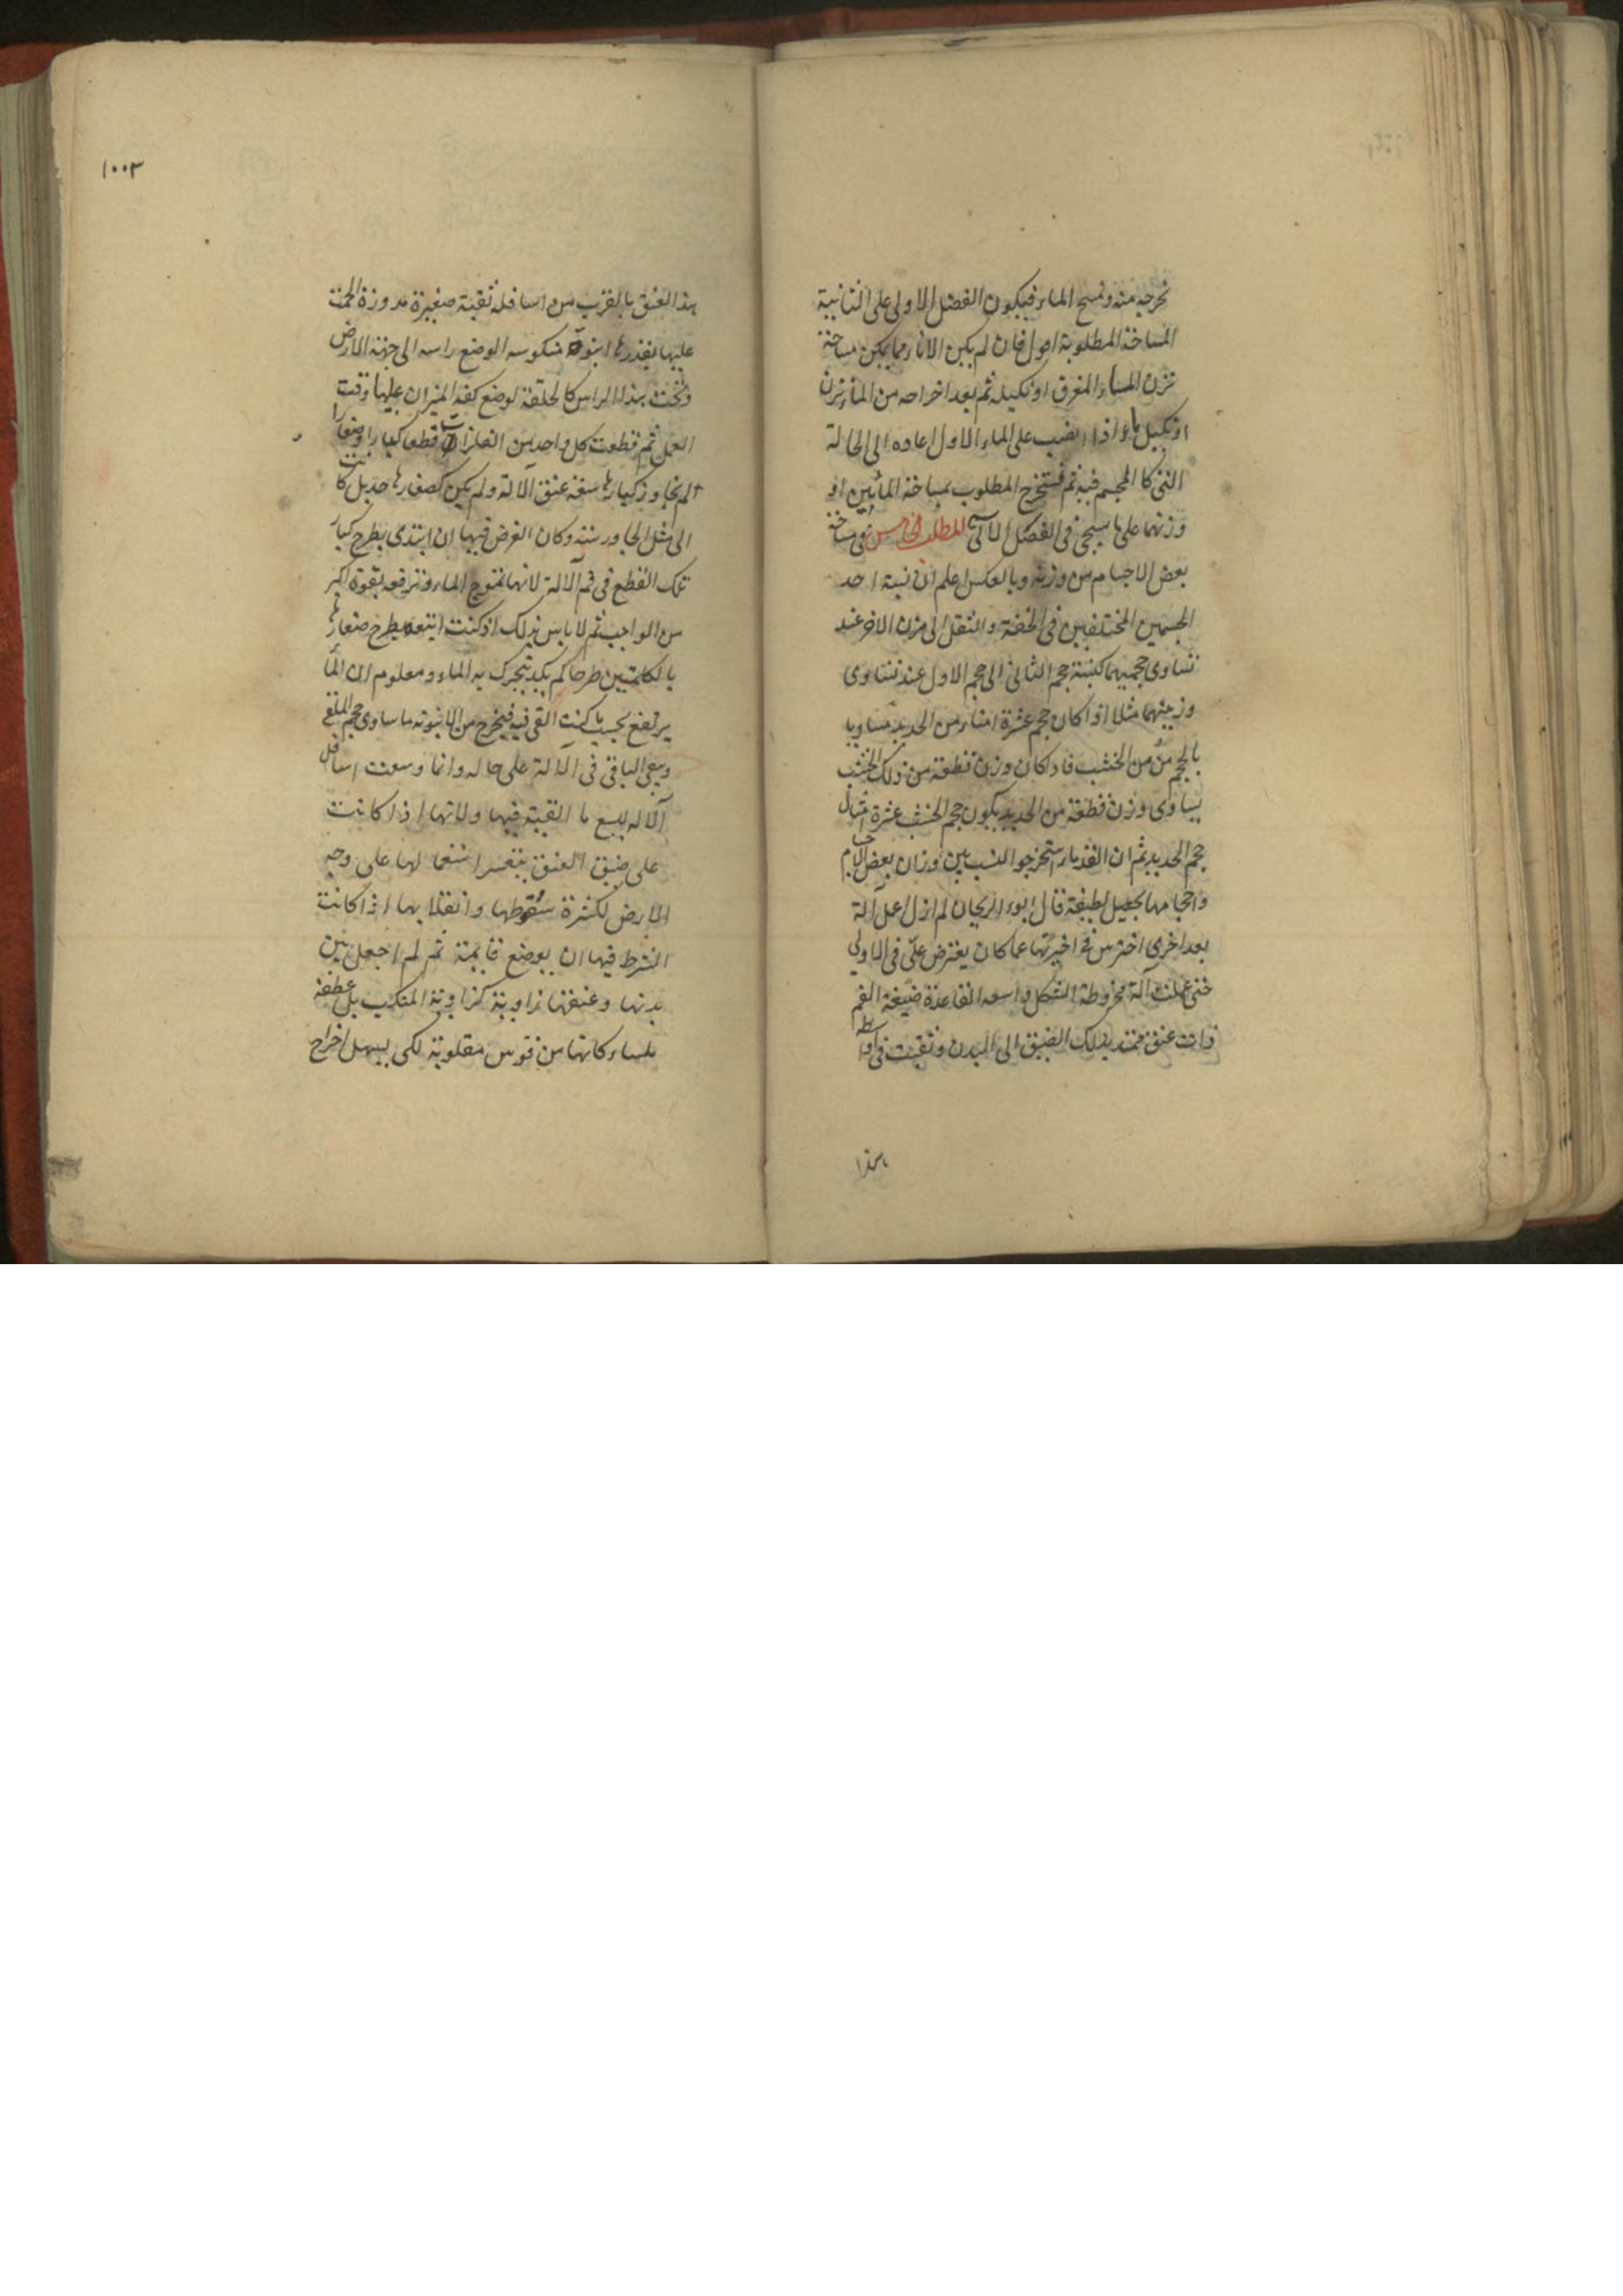 نخرجه منه ونمسح الماء فيكون الفضل الاولى على الثانية
المساحة المطلوبة اصول فان لم يكن الاناء مما يمكن مساحة
نزن الماء المغرق او نكيله ثم بعد اخراجه من الماء نزن
او نكيل ماء اذا انصب على الماء الاول اعاده الى الحالة
التى كا المجسم فيه ثم نستخرج المطلوب بمساحة المائين او
وزنهما على ما سيجئ فى الفصل الآتى المطلب الخامس فى مساحة
بعض الاجسام من وزنه وبالعكس اعلم ان نسبة احد
الجسمين المختلفين فى الخفة والثقل الى وزن الاخر عند
تساوى حجميهما كنسبة حجم الثانى الى حجم الاول عند تساوى
وزنيهما مثلا اذا كان حجم عشرة امناء من الحديد مساويا
بالحجم من من الخشب فاذا كان وزن قطعة من ذلك الخشب
يساوى وزن قطعة من الحديد يكون حجم الخشب عشرة امثال
حجم الحديد ثم ان القدماء استخرجوا النسب بين وزان بعض الاجسام
واحجامها بحيل لطيفة قال ابو الريحان لم ازل اعمل آلة
بعد اخرى احترس فى اخيرتها عما كان يعترض علىّ فى الاولى
حتى عملت آلة مخروطة الشكل واسعه القاعدة ضيقة الفم
ذات عنق ممتد بذلك الضيق الى البدن وثقبت فى اواسط
هذا
١٠٠٣
هذا العنق بالقرب من اسافله ثقبة صغيرة مدورة والحمت
عليها بقدرها انبوبة منكوسه الوضع راسه الى جهة الارض
وتحت هذا الراس كالحلقة لوضع كفه الميزان عليها وقت
العمل ثم قطعت كل واحد من الفلزات قطعا كبارا وصغارا
لم تجاوز كبارها سعة عنق الآلة ولم يكن كصغارها حد بل كانت
الى مثل الجاورسته وكان الغرض فيها ان ابتدى بطرح كبار
تلك القطع فى فم الآلة لانها تموج الماء وترفعه بقوة اكبر
من الواجب ثم لا باس بذلك اذ كنت اتبعه بطرح صغارها
بالكلبتين طرحا لم يكد يتحرك به الماء ومعلوم ان الماء
يرتفع بحسب ما كنت القى فيه فيخرج من الانبوبه ما ساوى حجم الملقى
ويبقى الباقى فى الآلة على حاله وانما وسعت اسافل
الآله ليسع ما القيته فيها ولانها اذا كانت
على ضيق العنق يتعسر استعمالها على وجه
الارض لكثرة سقوطها وانقلابها اذا كانت
الشرط فيها ان يوضع قايمة ثم لم اجعل بين
بدنها وعنقها زاوية كزاوية المنكب بل عطفة
ملساء كانها من قوس مقلوبة لكى يسهل اخراج